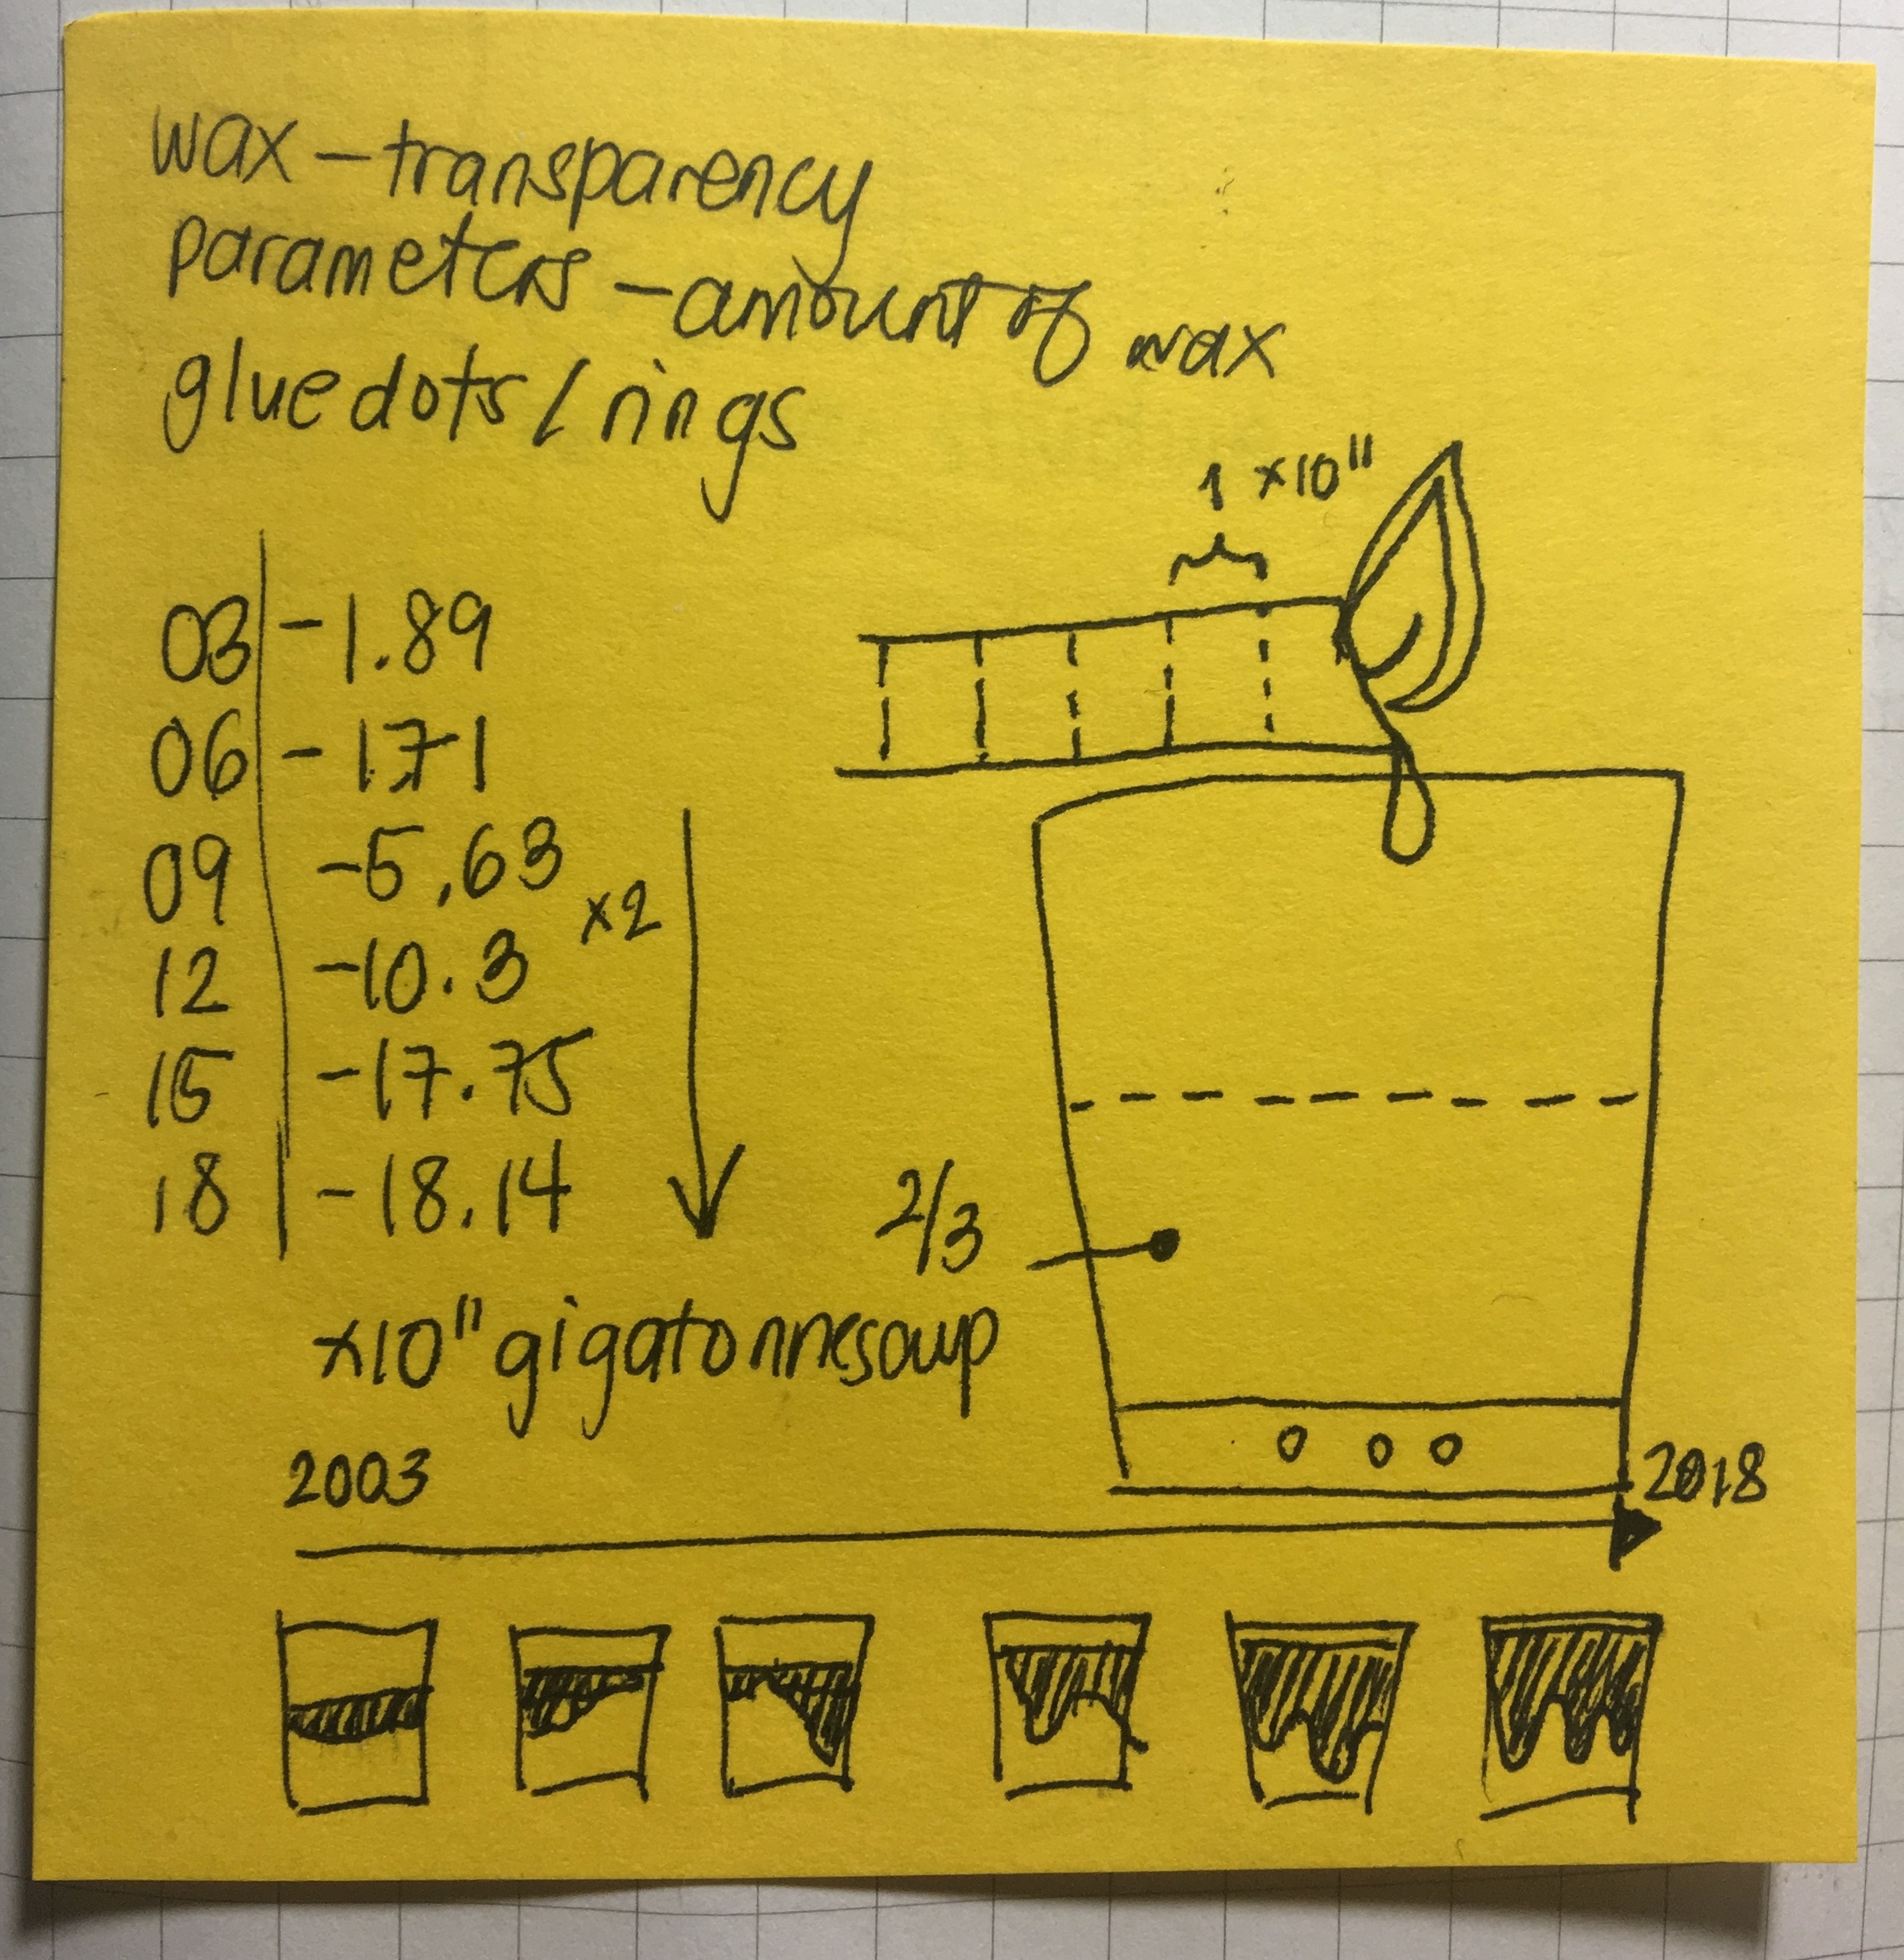 wax – transparency
parameters – amount of wax
glue dots / rings
1 ×10¹¹
03 – 1.89
06 – 1.71
09 – 5.63
×2
12 – 10.3
15 – 17.75
18 – 18.14
2/3
×10¹¹ gigatonnesoup
2003
2018